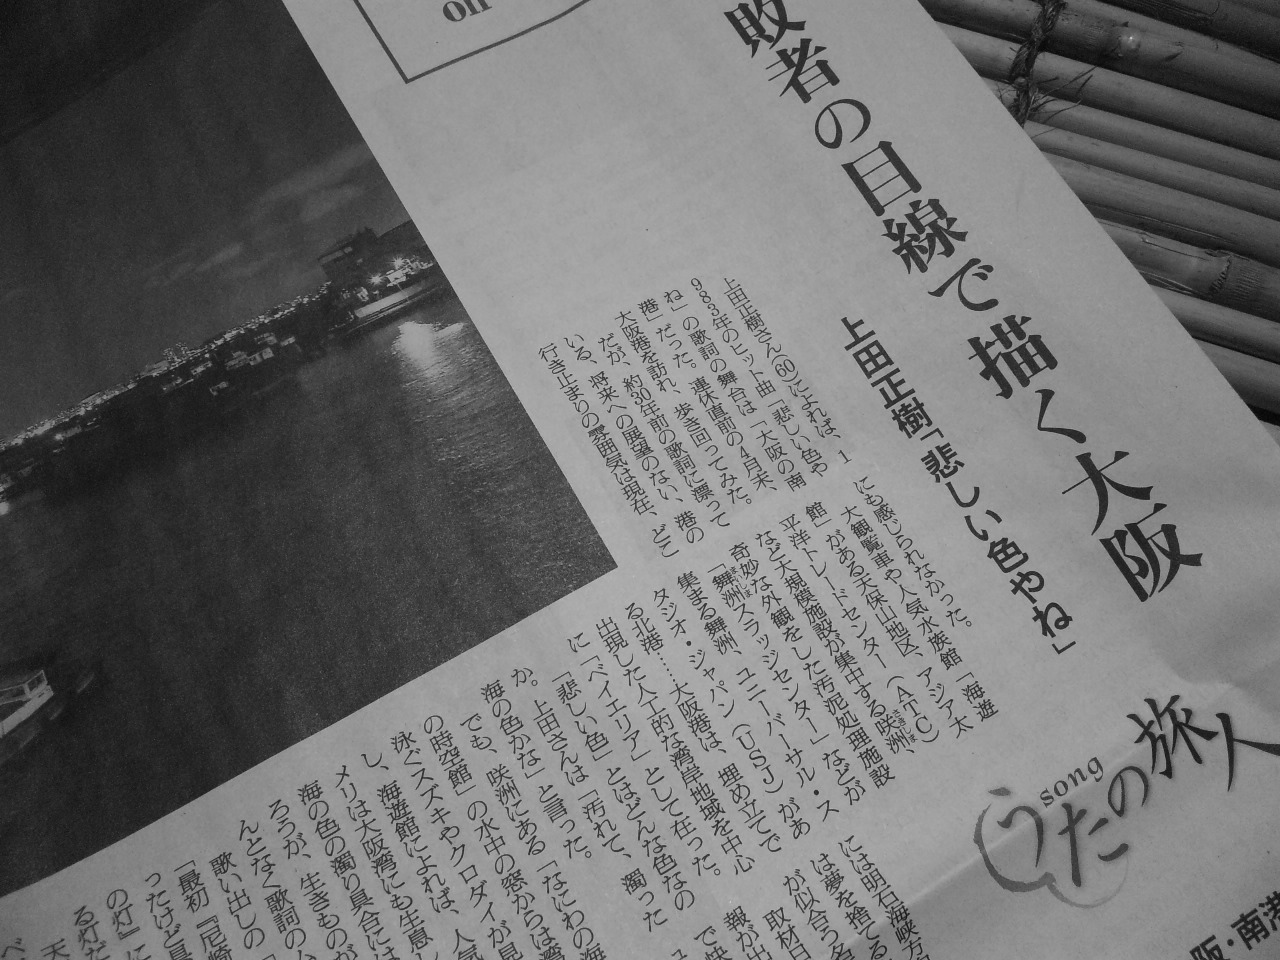 on
敗者の目線で描く大阪
上田正樹「悲しい色やね」
song
うたの旅人
阪・南港
上田正樹さん(60)によれば、1
983年のヒット曲「悲しい色や
ね」の歌詞の舞台は「大阪の南
港」だった。連休直前の4月末、
大阪港を訪れ、歩き回ってみた。
だが、約30年前の歌詞に漂って
いる、将来への展望のない、港の
行き止まりの雰囲気は現在、どこ
にも感じられなかった。
大観覧車や人気水族館「海遊
館」がある天保山地区、アジア太
平洋トレードセンター(ATC)
など大規模施設が集中する咲洲、
さきしま
奇妙な外観をした汚泥処理施設
「舞洲スラッジセンター」などが
まいしま
集まる舞洲、ユニバーサル・ス
タジオ・ジャパン(USJ)があ
る北港……大阪港は、埋め立てで
出現した人工的な湾岸地域を中心
に「ベイエリア」として在った。
「悲しい色」とはどんな色なの
か。上田さんは「汚れて、濁った
海の色かな」と言った。
でも、咲洲にある「なにわの海
の時空館」の水中の窓からは湾
泳ぐスズキやクロダイが見
し、海遊館によれば、人気
メリは大阪湾にも生息し
海の色の濁り具合には
ろうが、生きものが
んとなく歌詞のム
歌い出しの
「最初『尼崎
ったけど
の灯』に
る灯だ
天
べ
には明石海峡方
は夢を捨てる
が似合う名
取材日
報が出
で快
ュ